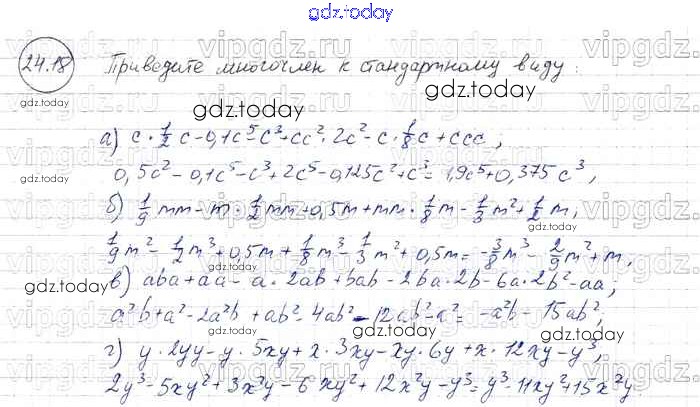 gdz.today
24.18 Приведите многочлен к стандартному виду:
gdz.today gdz.today
gdz.today
а) c·1/2c-0,1c⁵-c³+cc²·2c²-c·1/8c+ccc,
0,5c²-0,1c⁵-c³+2c⁵-0,125c²+c³=1,9c⁵+0,375c³,
б) 1/9mm-m·1/2mm+0,5m+mm·1/8m-1/3m²+1/2m,
1/9m²-1/2m³+0,5m+1/8m³-1/3m²+0,5m=-3/8m³-2/9m²+m,
gdz.today gdz.today
в) aba+aa-a·2ab+bab-2ba·2b-6a·2b²-aa;
a²b+a²-2a²b+ab²-4ab²-12ab²-a²=-a²b-15ab²;
gdz.today
г) y·2yy-y·5xy+x·3xy-xy·6y+x·12xy-y³,
2y³-5xy²+3x²y-6xy²+12x²y-y³=y³-11xy²+15x²y.
gdz.today gdz.today